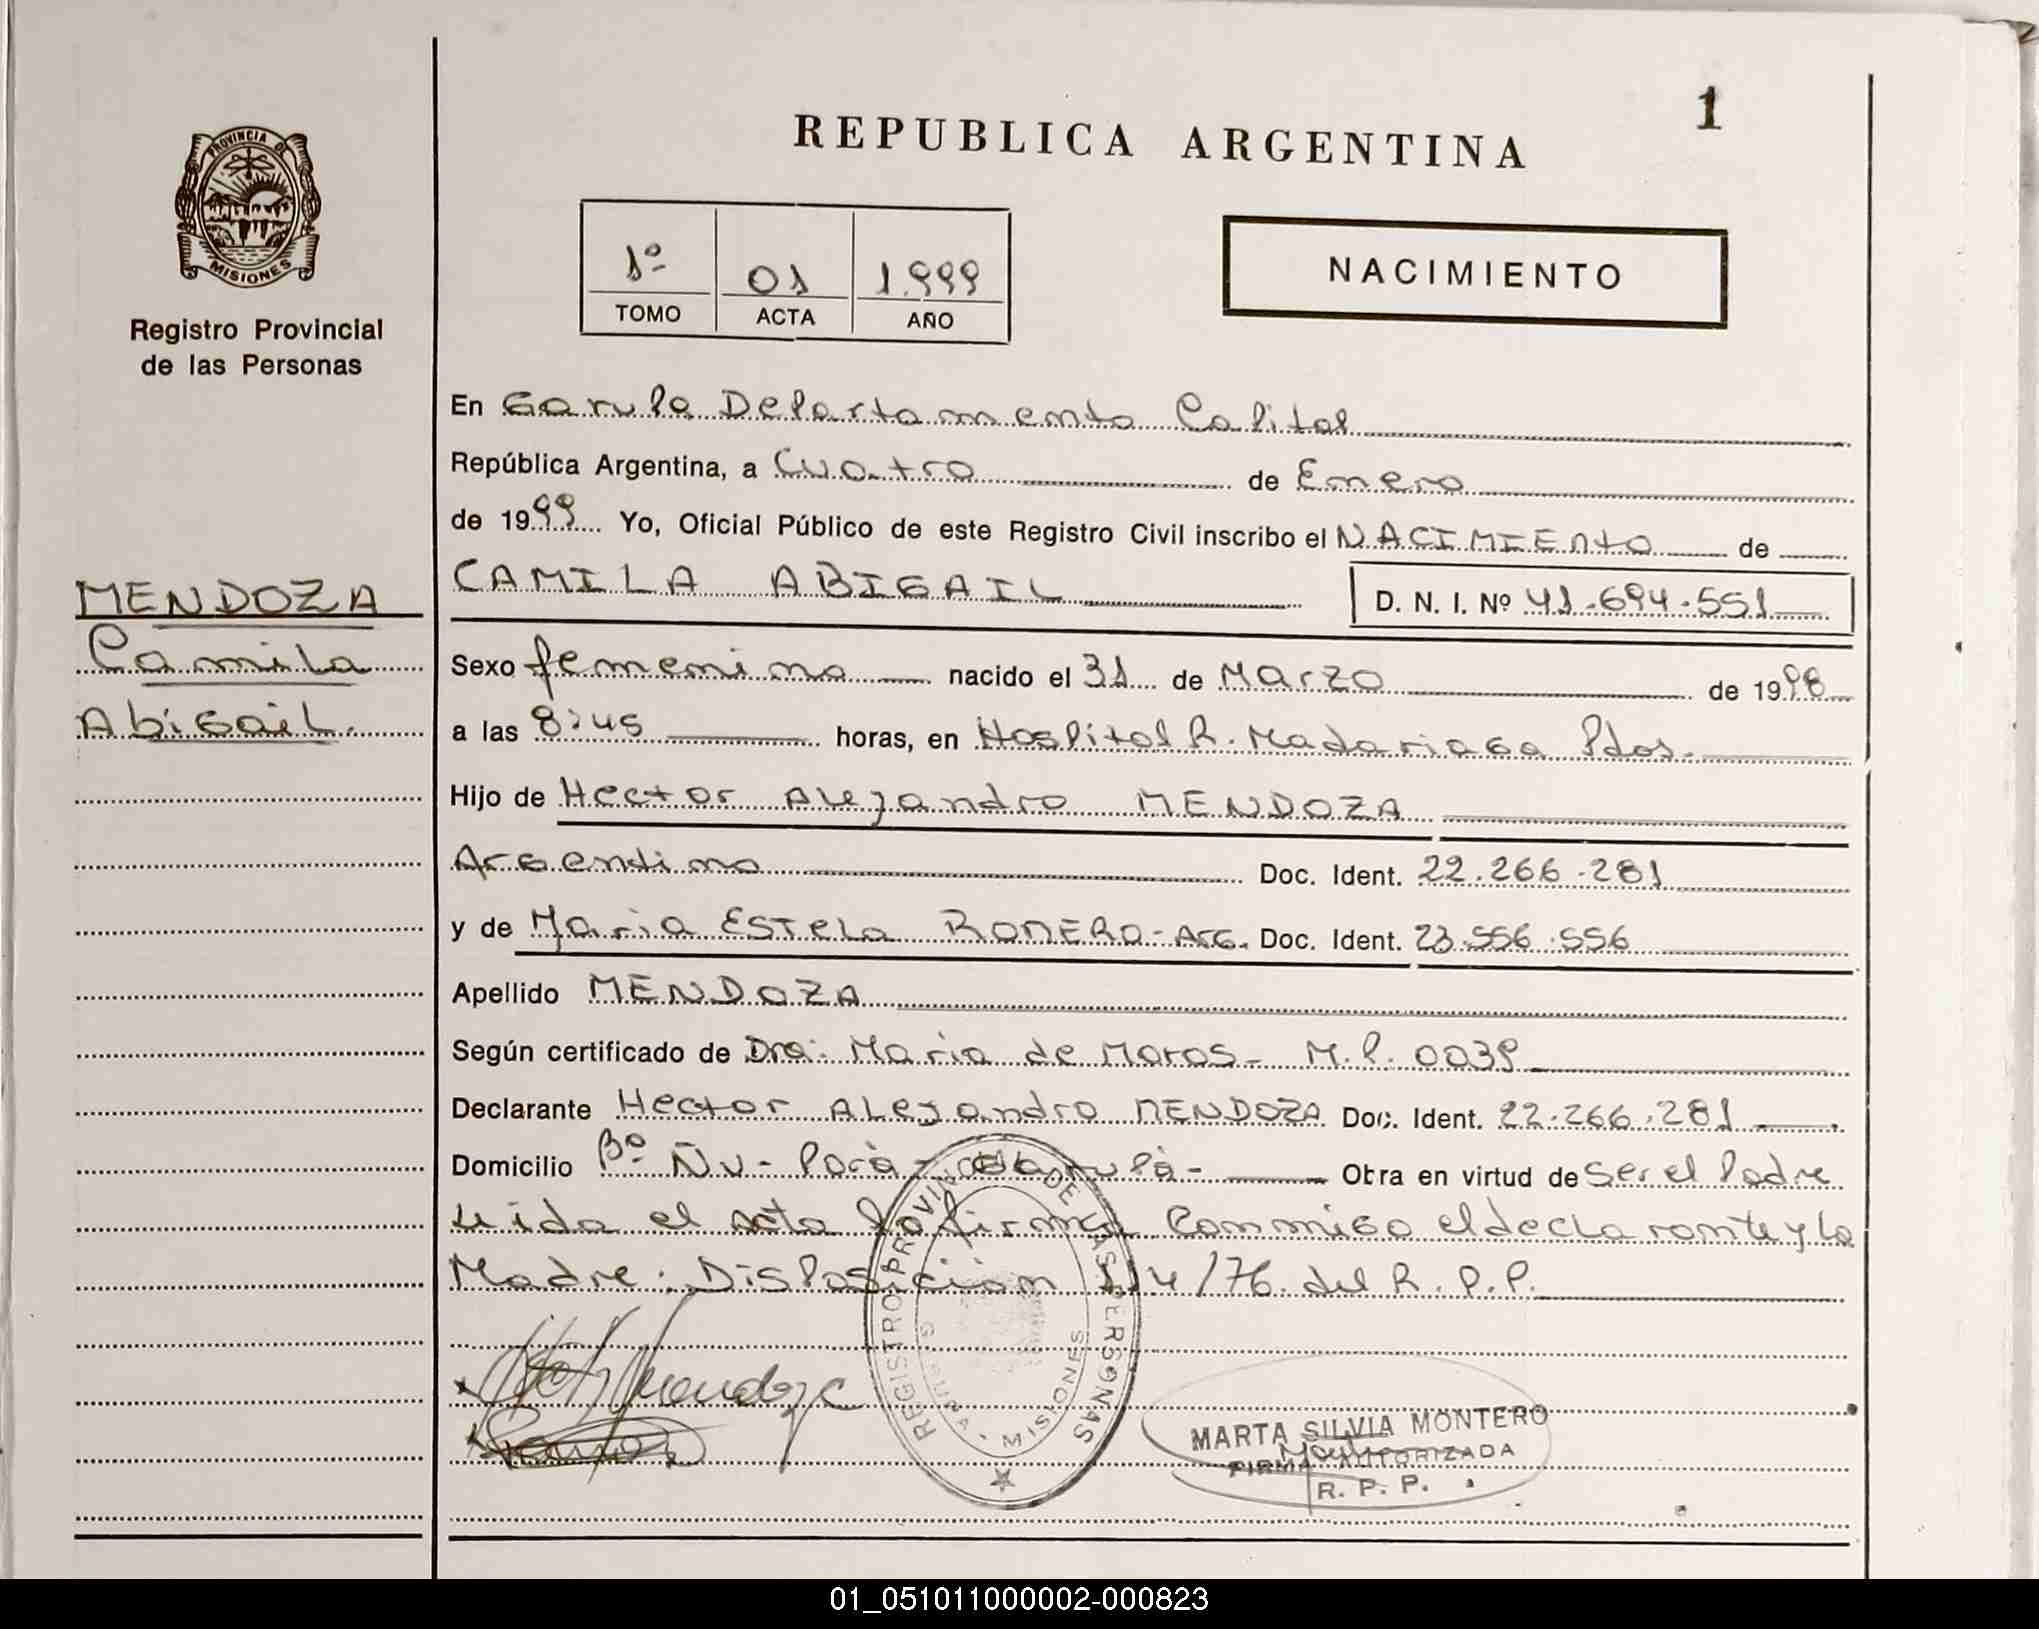 1
REPUBLICA ARGENTINA
PROVINCIA DE
MISIONES
Registro Provincial
de las Personas
1º 01 1.999
TOMO ACTA AÑO
NACIMIENTO
En Garupa Departamento Capital
República Argentina, a Cuatro de Enero
de 1999 Yo, Oficial Público de este Registro Civil inscribo el NACIMIENTO de
CAMILA ABIGAIL D. N. I. Nº 41.694.551
MENDOZA
Camila
Abigail.
Sexo femenino nacido el 31 de Marzo de 1998
a las 8:45 horas, en Hospital R. Madariaga Pdas.
Hijo de Hector Alejandro MENDOZA
Argentino Doc. Ident. 22.266.281
y de Maria Estela ROMERO - Arg. Doc. Ident. 23.556.556
Apellido MENDOZA
Según certificado de Dra. Maria de - M.P. 0039
Declarante Hector Alejandro MENDOZA Doc. Ident. 22.266.281
Domicilio Bº Ñu - Porà - Garupà - Obra en virtud de ser el Padre
Leida el acta la firma conmigo el declarante y la
Madre. Disposición 114/76 del R.P.P.
Mendoza
REGISTRO PROVINCIAL DE LAS PERSONAS
MISIONES
MARTA SILVIA MONTERO
FIRMA AUTORIZADA
R. P. P.
01_051011000002-000823